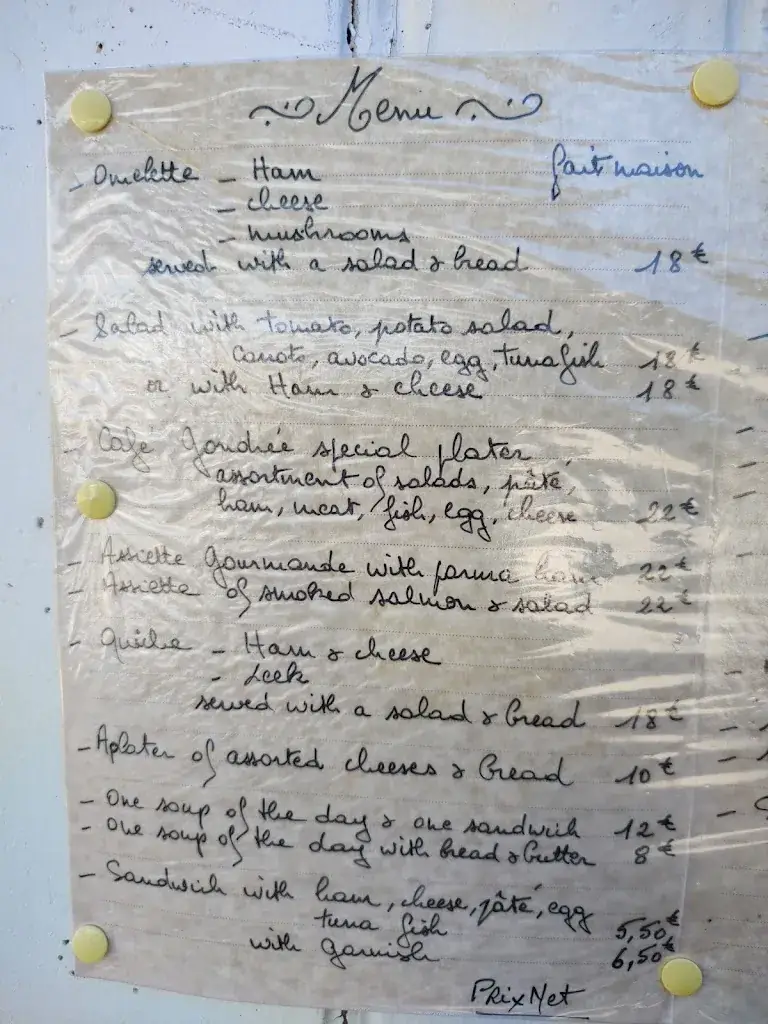 Menu
- Omelette - Ham fait maison
- cheese
- mushrooms
served with a salad & bread 18€
- Salad with tomato, potato salad,
carrots, avocado, egg, tuna fish 18€
or with Ham & cheese 18€
- Café Gondrée special plater
assortment of salads, pâté,
ham, meat, fish, egg, cheese 22€
- Assiette Gourmande with parma ham 22€
- Assiette of smoked salmon & salad 22€
- Quiche - Ham & cheese
- Leek
served with a salad & bread 18€
- A plater of assorted cheeses & bread 10€
- One soup of the day & one sandwich 12€
- One soup of the day with bread & butter 8€
- Sandwich with ham, cheese, pâté, egg
tuna fish 5,50€
with garnish 6,50€
Prix Net